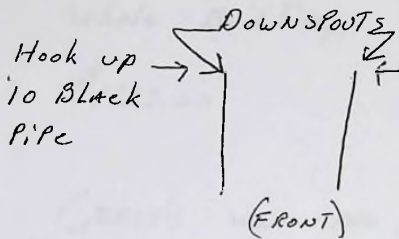 DOWNSPOUTS
Hook up
to BLACK
PiPe
(FRONT)